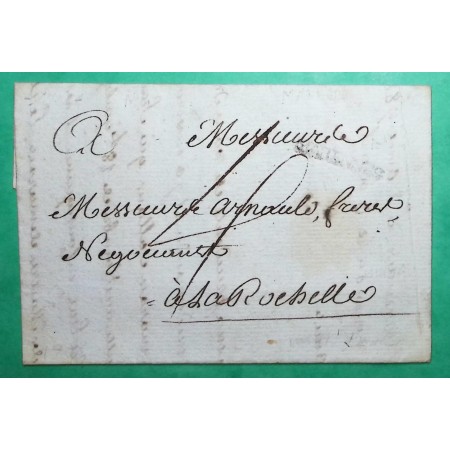 A Messieurs
Messieurs Arnauld, freres
Negociants
à La Rochelle